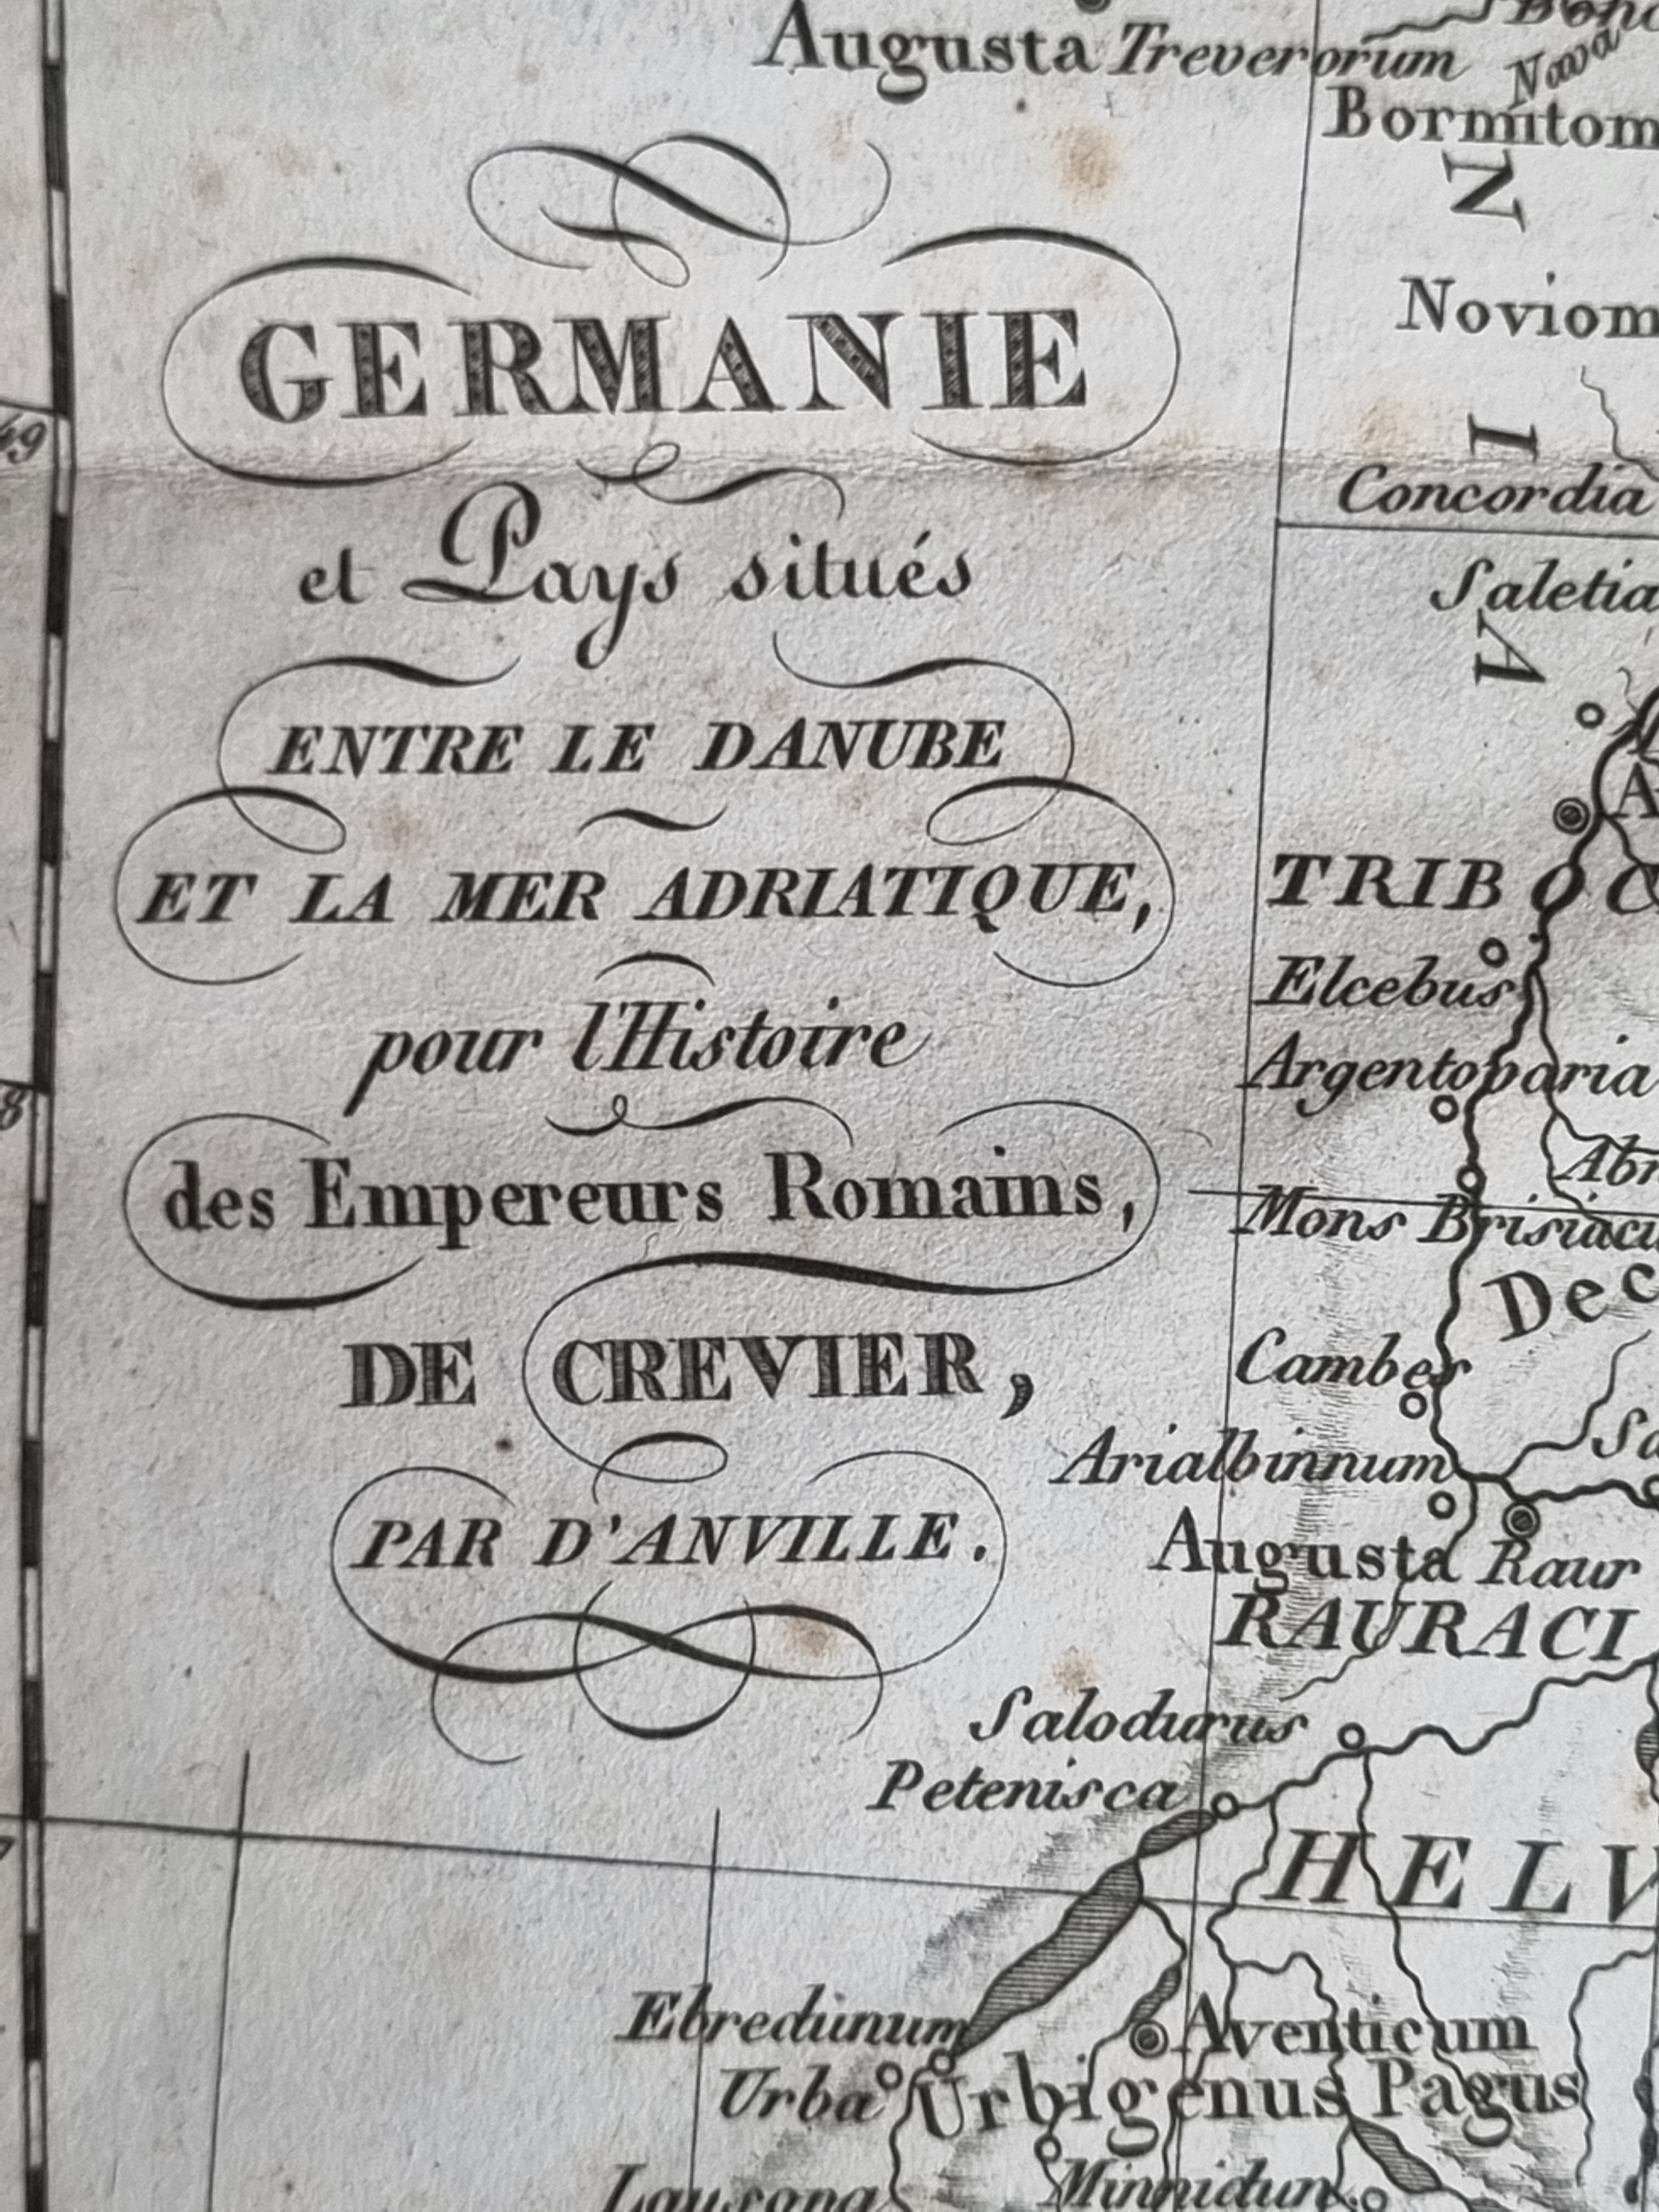 Augusta Treverorum
Nava
GERMANIE
et Pays situés
ENTRE LE DANUBE
ET LA MER ADRIATIQUE,
pour l'Histoire
des Empereurs Romains,
DE CREVIER,
PAR D'ANVILLE.
49
Bormitom
N
Noviom
I
Concordia
Saletia
A
A
TRIBOC
Elcebus
Argentoparia
8
Abr
Mons Brisiacu
Dec
Cambes
Sa
Arialbinnum
Augusta Raur
RAURACI
Salodurus
Petenisca
7
HELV
Ebredunum
Aventicum
Urba
Urbigenus Pagus
Minnidun
Lausona